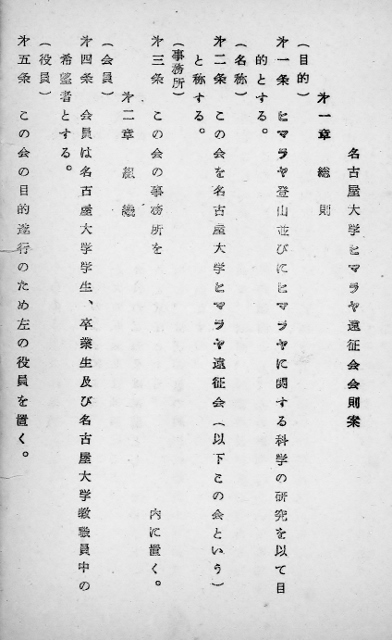 名古屋大学ヒマラヤ遠征会会則案
才一章　総　則
（目的）
才一条　ヒマラヤ登山並びにヒマラヤに関する科学の研究を以て目
的とする。
（名称）
才二条　この会を名古屋大学ヒマラヤ遠征会（以下この会という）
と称する。
（事務所）
才三条　この会の事務所を　　　　　　　　内に置く。
才二章　組　織
（会員）
才四条　会員は名古屋大学学生、卒業生及び名古屋大学教職員中の
希望者とする。
（役員）
才五条　この会の目的遂行のため左の役員を置く。